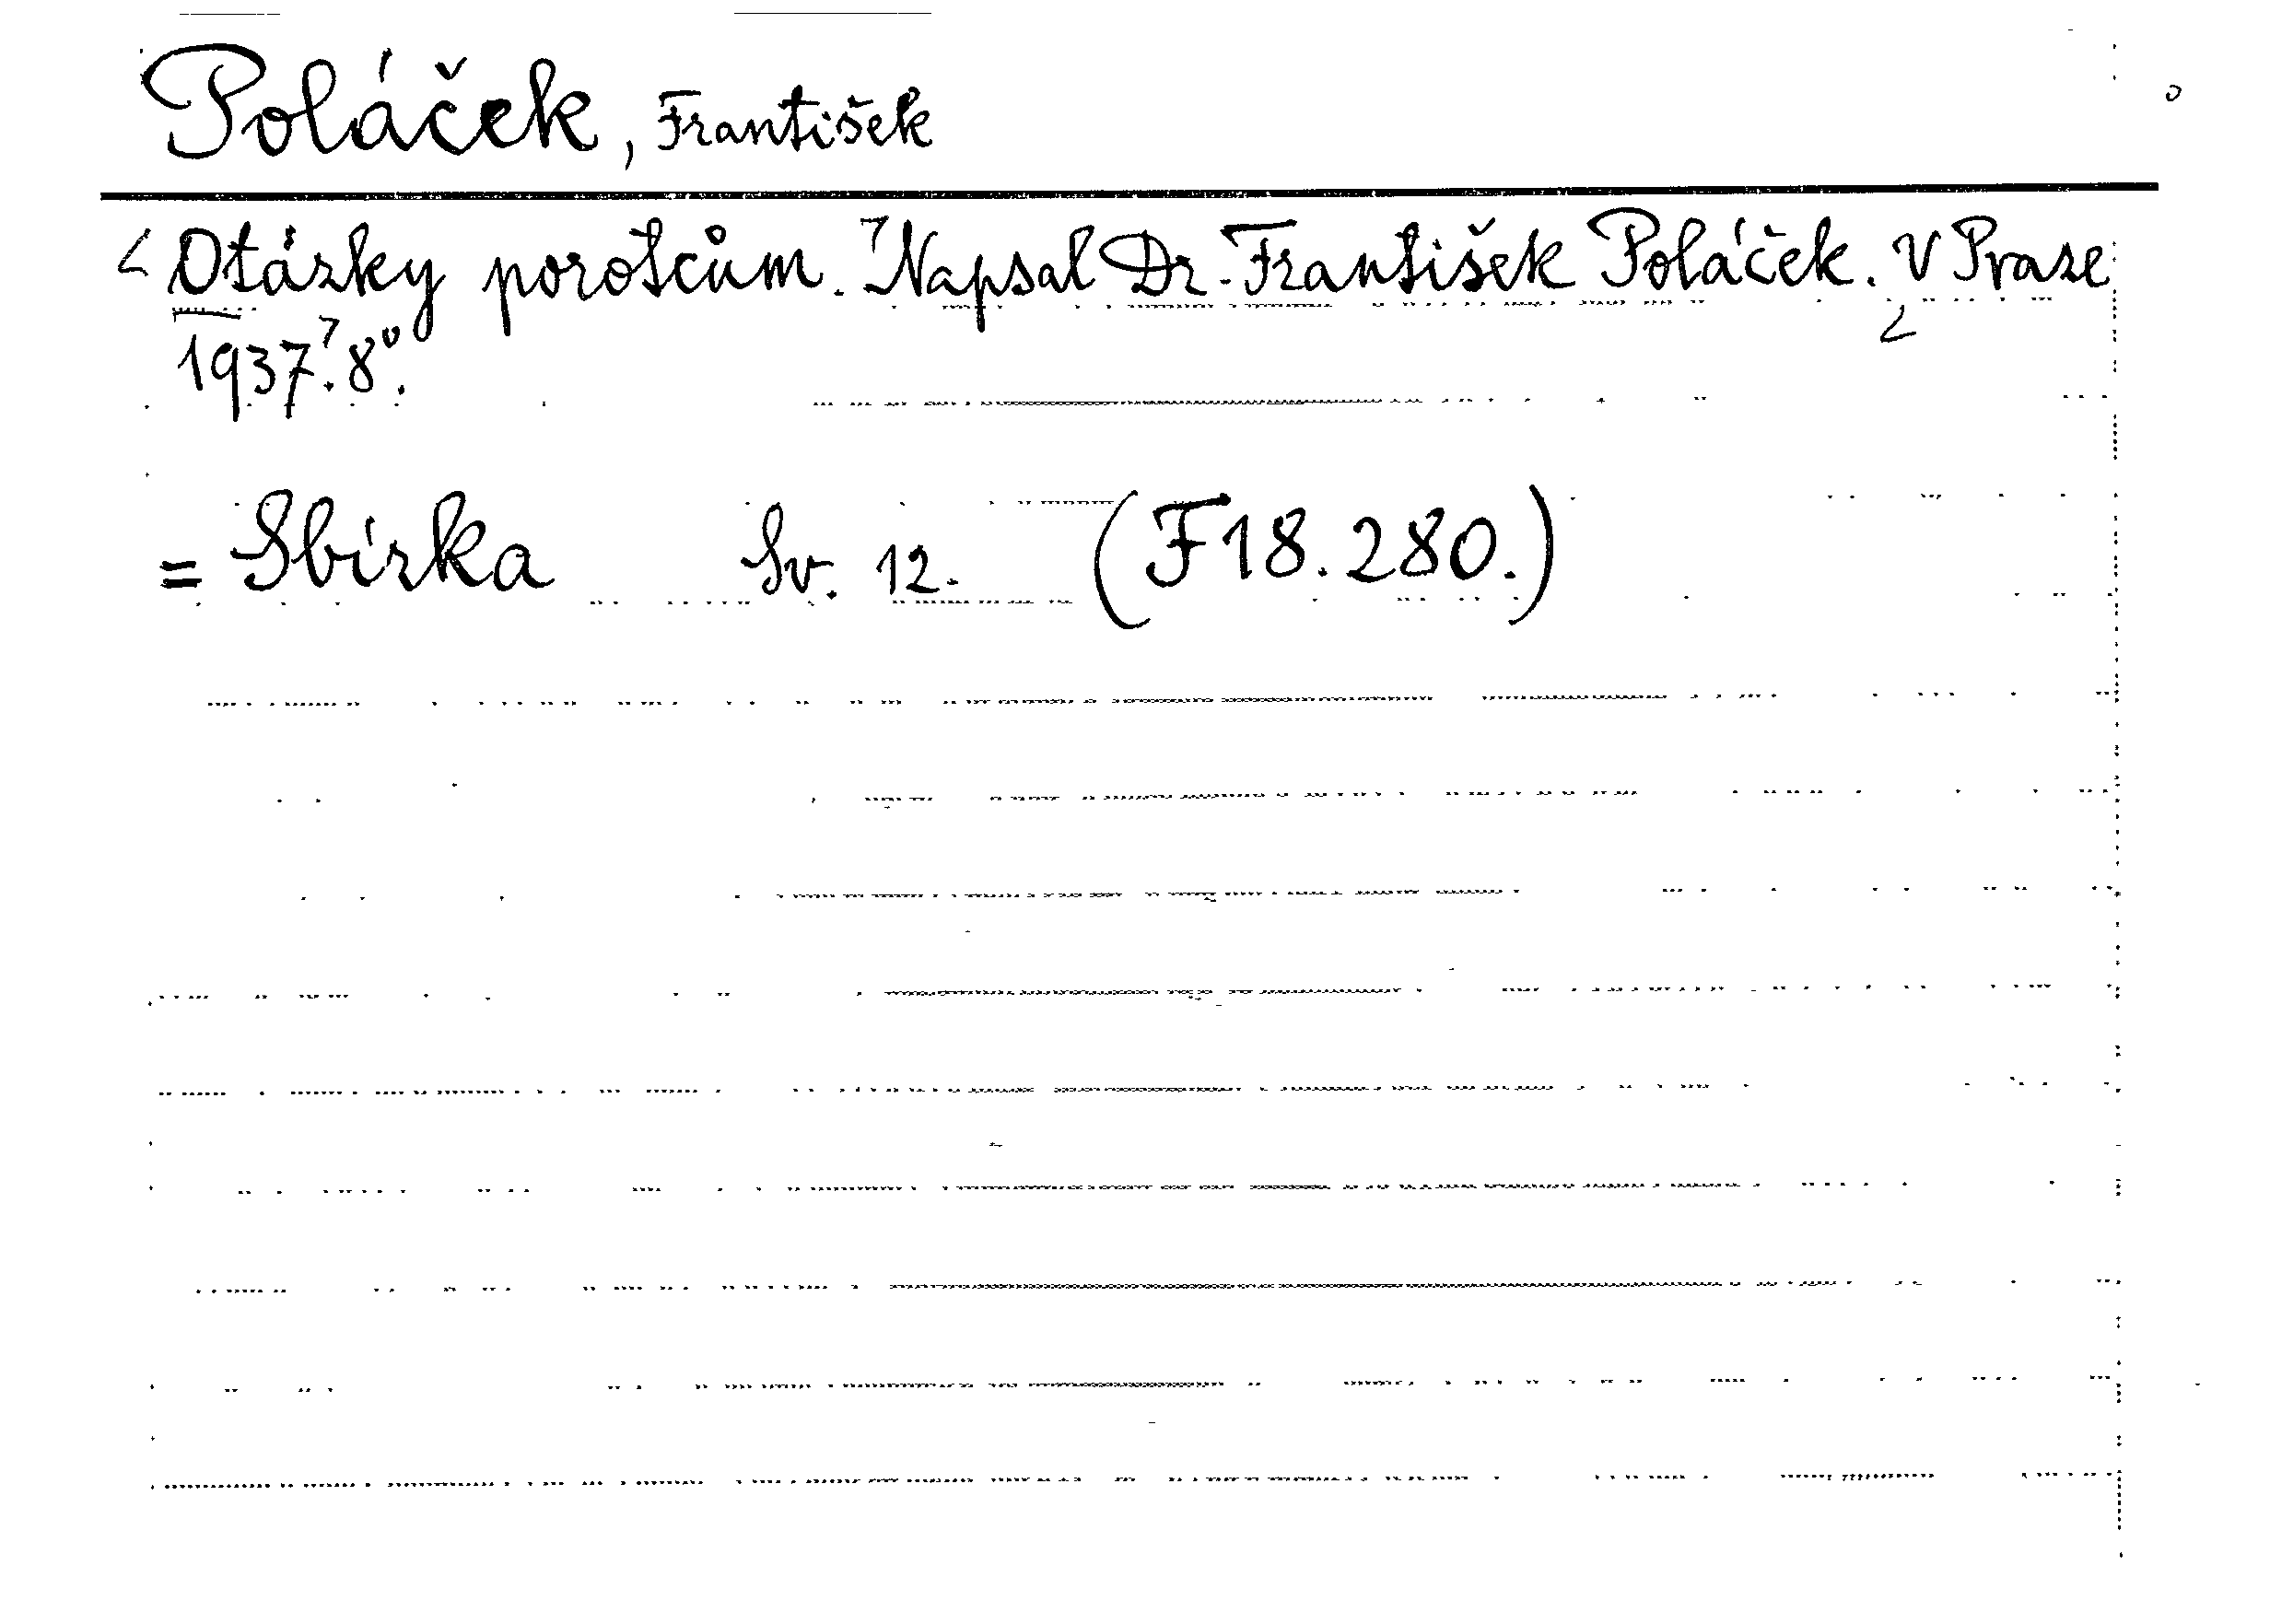 Poláček, František
Otázky porotcům. Napsal Dr. František Poláček. V Praze
1937. 8°.
= Sbírka Sv. 12. (F18.280.)